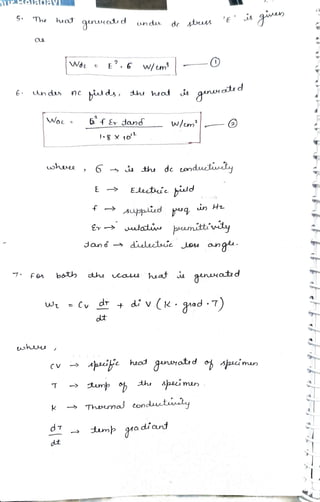 5. The heat generated under dc stress "E" is given
as
Wdc = E². б W/cm³ — ①
6. Under AC fields, the heat is generated
Wac = G² f εr tanδ / 1.8 × 10¹² W/cm³ — ②
where, б → is the dc conductivity
E → Electric field
f → supplied freq in Hz
εr → relative permittivity
tanδ → dielectric loss angle.
7. For both the cases heat is generated
WT = Cv dT/dt + div (K. grad. T)
where,
CV → specific heat generated of specimen
T → temp of the specimen
K → Thermal conductivity
dT/dt → temp gradiant